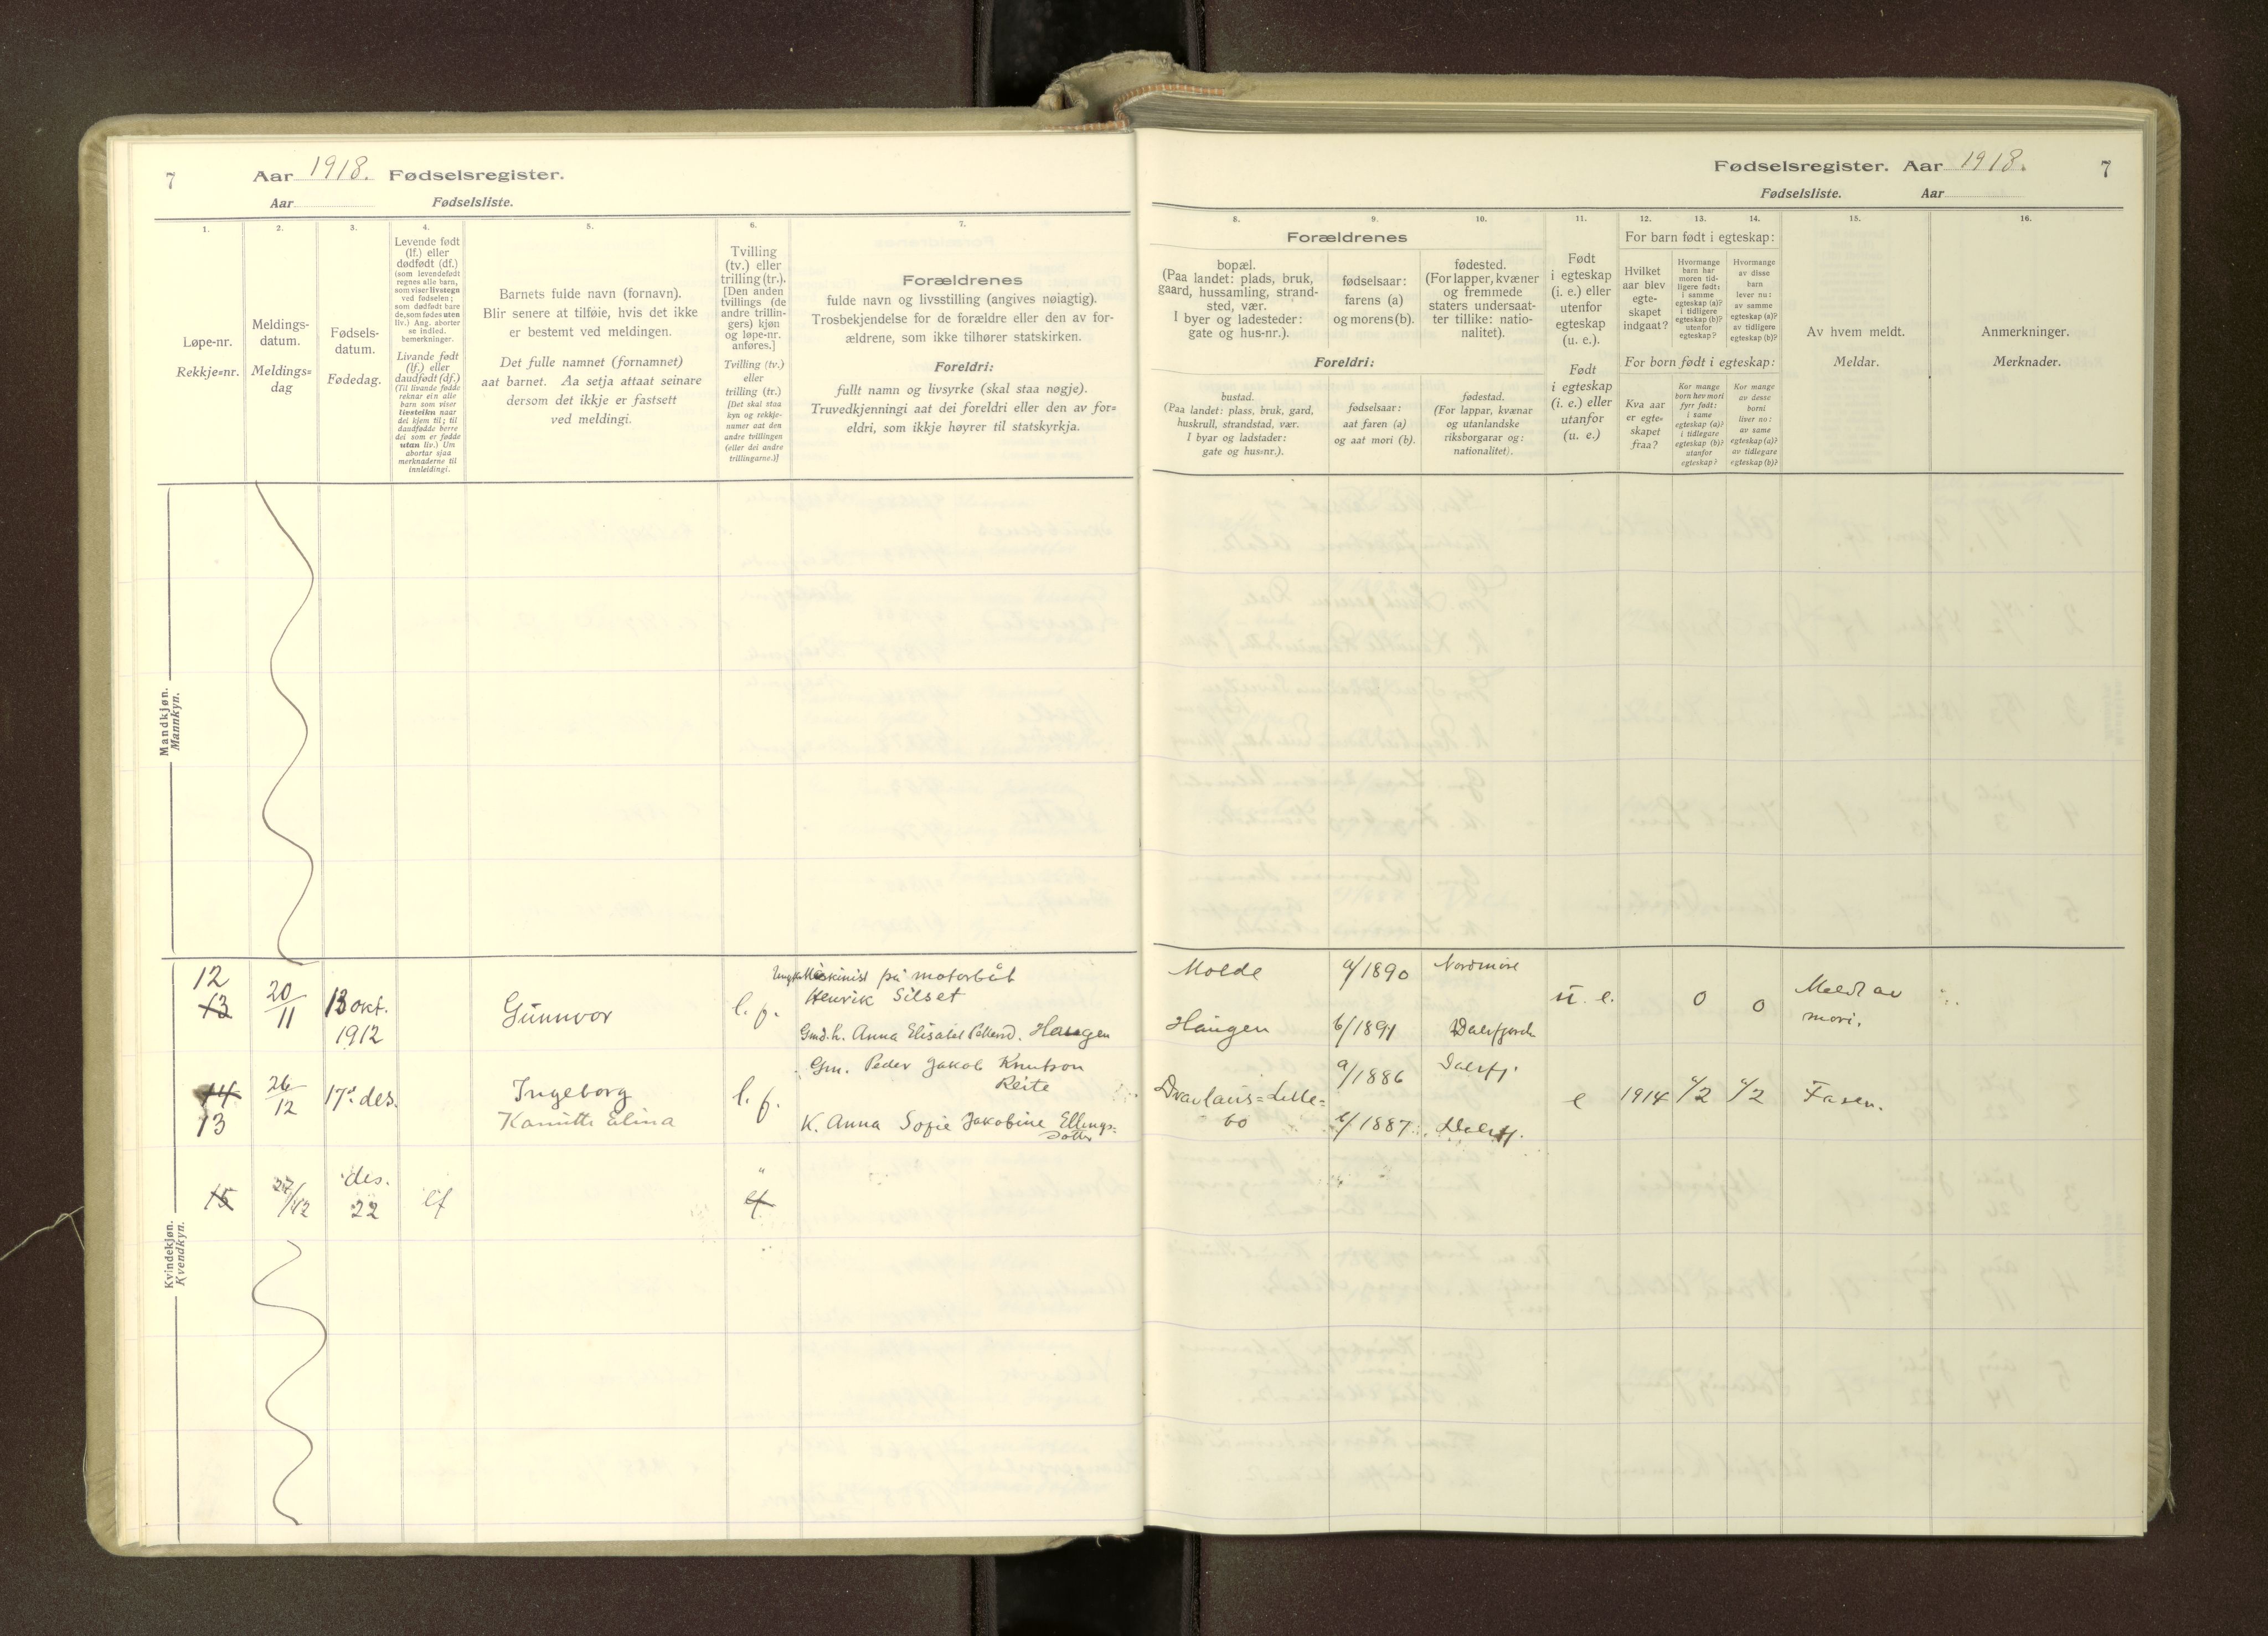 7 Aar 1918. Fødselsregister.
Aar Fødselsliste.
1.
Løpe-nr.
Rekkje=nr.
2.
Meldings-
datum.
Meldings=
dag
3.
Fødsels-
datum.
Fødedag.
4.
Levende født
(lf.) eller
dødfødt (df.)
(som levendefødt
regnes alle barn,
som viser livstegn
ved fødselen;
som dødfødt bare
de, som fødes uten
liv.) Ang. aborter
se indled.
bemerkninger.
Livande født
(lf.) eller
daudfødt (df.)
(Til livande fødde
reknar ein alle
barn som viser
livsteikn naar
dei kjem til; til
daudfødde berre
dei som er fødde
utan liv.) Um
abortar sjaa
merknaderne til
innleidingi.
5.
Barnets fulde navn (fornavn).
Blir senere at tilføie, hvis det ikke
er bestemt ved meldingen.
Det fulle namnet (fornamnet)
aat barnet. Aa setja attaat seinare
dersom det ikkje er fastsett
ved meldingi.
6.
Tvilling
(tv.) eller
trilling (tr.).
[Den anden
tvillings (de
andre trillin-
gers) kjøn
og løpe-nr.
anføres.]
Tvilling (tv.)
eller
trilling (tr.)
[Det skal staa
kyn og rekkje-
numer aat den
andre tvillingen
(eller dei andre
trillingarne.)]
7.
Forældrenes
fulde navn og livsstilling (angives nøiagtig).
Trosbekjendelse for de forældre eller den av for-
ældrene, som ikke tilhører statskirken.
Foreldri:
fullt namn og livsyrke (skal staa nøgje).
Truvedkjenningi aat dei foreldri eller den av for=
eldri, som ikkje høyrer til statskyrkja.
Mandkjøn.
Mannkyn.
12
13 20/11 13 okt. 1912 Gunnvor l. f. Maskinist på motorbåt
Henrik Silset
Anna Elisabet Haugen
14 26/12 17. des. Ingeborg l. f. Gm. Peder Jakob Knutson
Reite
13 Kamitte Elina K. Anna Sofie Jakobine Ellings-
dotter
15 27/12 des. 22 lf lf
Kvindekjøn.
Kvendkyn.
Fødselsregister. Aar 1918. 7
Fødselsliste. Aar
8.
Forældrenes
bopæl.
(Paa landet: plads, bruk,
gaard, hussamling, strand-
sted, vær.
I byer og ladesteder:
gate og hus-nr.).
Foreldri:
bustad.
(Paa landet: plass, bruk, gard,
huskrull, strandstad, vær.
I byar og ladstader:
gate og hus=nr.).
9.
fødselsaar:
farens (a)
og morens (b).
fødselsaar:
aat faren (a)
og aat mori (b).
10.
fødested.
(For lapper, kvæner
og fremmede
staters undersaat-
ter tillike: natio-
nalitet).
fødestad.
(For lappar, kvænar
og utanlandske
riksborgarar og:
nationalitet).
11.
Født
i egteskap
(i. e.) eller
utenfor
egteskap
(u. e.).
Født
i egteskap
(i. e.) eller
utanfor
(u. e.)
12.
13.
14.
For barn født i egteskap:
Hvilket
aar blev
egte-
skapet
indgaat?
Hvormange
barn har
moren tid-
ligere født:
i samme
egteskap (a)?
i tidligere
egteskap (b)?
utenfor
egteskap?
Hvormange
av disse
barn
lever nu:
av samme
egteskap (a)?
av tidligere
egteskap (b)?
For born født i egteskap:
Kva aar
er egte-
skapet
fraa?
Kor mange
born hev mori
fyrr født:
i same
egteskap (a)?
i tidlegare
egteskap (b)?
utanfor
egteskap?
Kor mange
av desse
borni
liver no:
av same
egteskap (a)?
av tidlegare
egteskap (b)?
15.
Av hvem meldt.
Meldar.
16.
Anmerkninger.
Merknader.
Molde a/1890 Nordmøre
u. e. 0 0 Meldt av
mori.
Haugen b/1891 Dalsfjorden
a/1886 Dalsfj.
Dravlaus=Lille=
bo e 1914 a/2 a/2 Faren.
b/1887 Dalsfj.